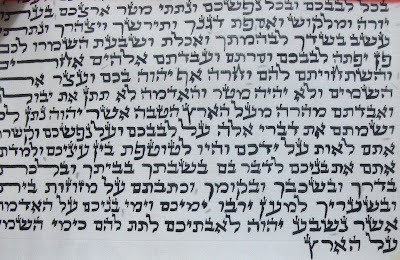 בכל לבבכם ובכל נפשכם ונתתי מטר ארצכם
יורה ומלקוש ואספת דגנך ותירשך ויצהרך ונתתי
עשב בשדך לבהמתך ואכלת ושבעת השמרו לכם
פן יפתה לבבכם וסרתם ועבדתם אלהים אחרים
והשתחויתם להם וחרה אף יהוה בכם ועצר את
השמים ולא יהיה מטר והאדמה לא תתן את
ואבדתם מהרה מעל הארץ הטבה אשר יהוה נתן
ושמתם את דברי אלה על לבבכם ועל נפשכם
אתם לאות על ידכם והיו לטוטפת בין עיניכם
אתם את בניכם לדבר בם בשבתך בביתך
בדרך ובשכבך ובקומך וכתבתם על מזוזות
ובשעריך למען ירבו ימיכם וימי בניכם על האדמה
אשר נשבע יהוה לאבתיכם לתת להם כימי
על הארץ